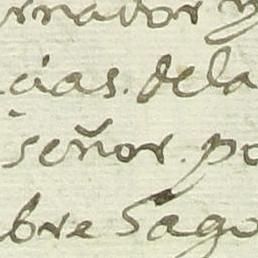 rnador y
cias. dela
señor. po
bre Sago